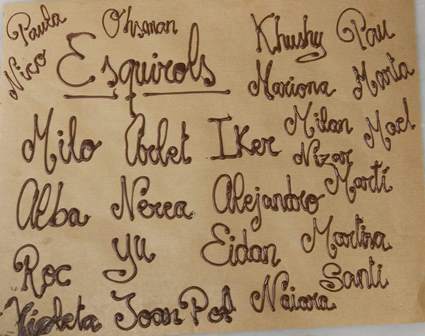 Paula Ohsman Khushy Pau
Nico Esquirols Mariona Marta
Milo Arlet Iker Milan Mael
Nizar
Alba Nerea Alejandro Martí
Roc Yu Eidan Martina
Santi
Violeta Joan Pol Naiara